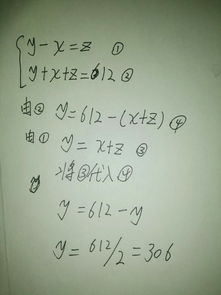 y-x=z ①
y+x+z=612 ②
由② y=612-(x+z) ④
由① y=x+z ③
将③代入④
y=612-y
y=612/2=306